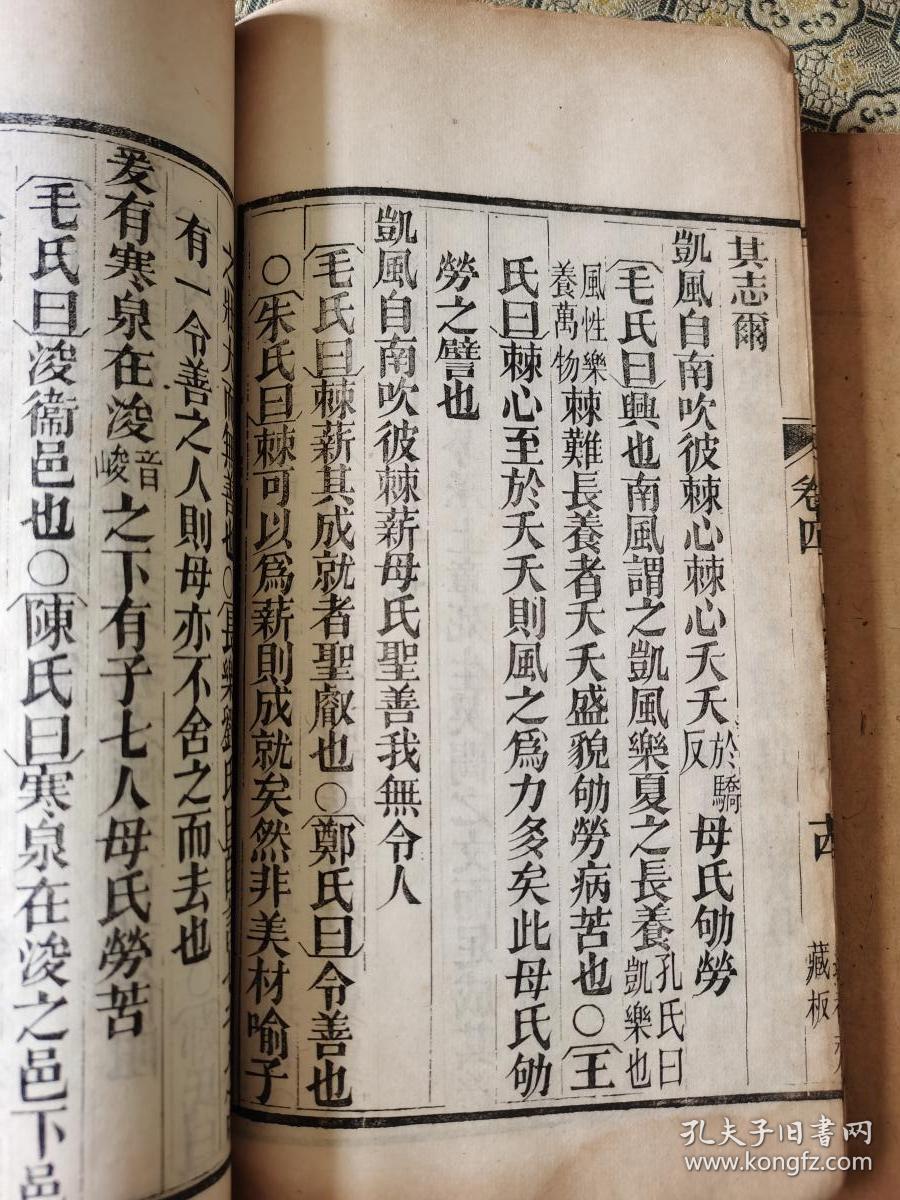 其志爾
凱風自南吹彼棘心棘心夭夭於驕反母氏劬勞
毛氏曰興也南風謂之凱風樂夏之長養孔氏曰凱樂也
風性樂養萬物棘難長養者夭夭盛貌劬勞病苦也○王
氏曰棘心至於夭夭則風之爲力多矣此母氏劬
勞之譬也
凱風自南吹彼棘薪母氏聖善我無令人
毛氏曰棘薪其成就者聖叡也○鄭氏曰令善也
○朱氏曰棘可以爲薪則成就矣然非美材喻子
有一令善之人則母亦不舍之而去也
爰有寒泉在浚音峻之下有子七人母氏勞苦
毛氏曰浚衞邑也○陳氏曰寒泉在浚之邑下邑
卷四
藏板
孔夫子旧书网
www.kongfz.com